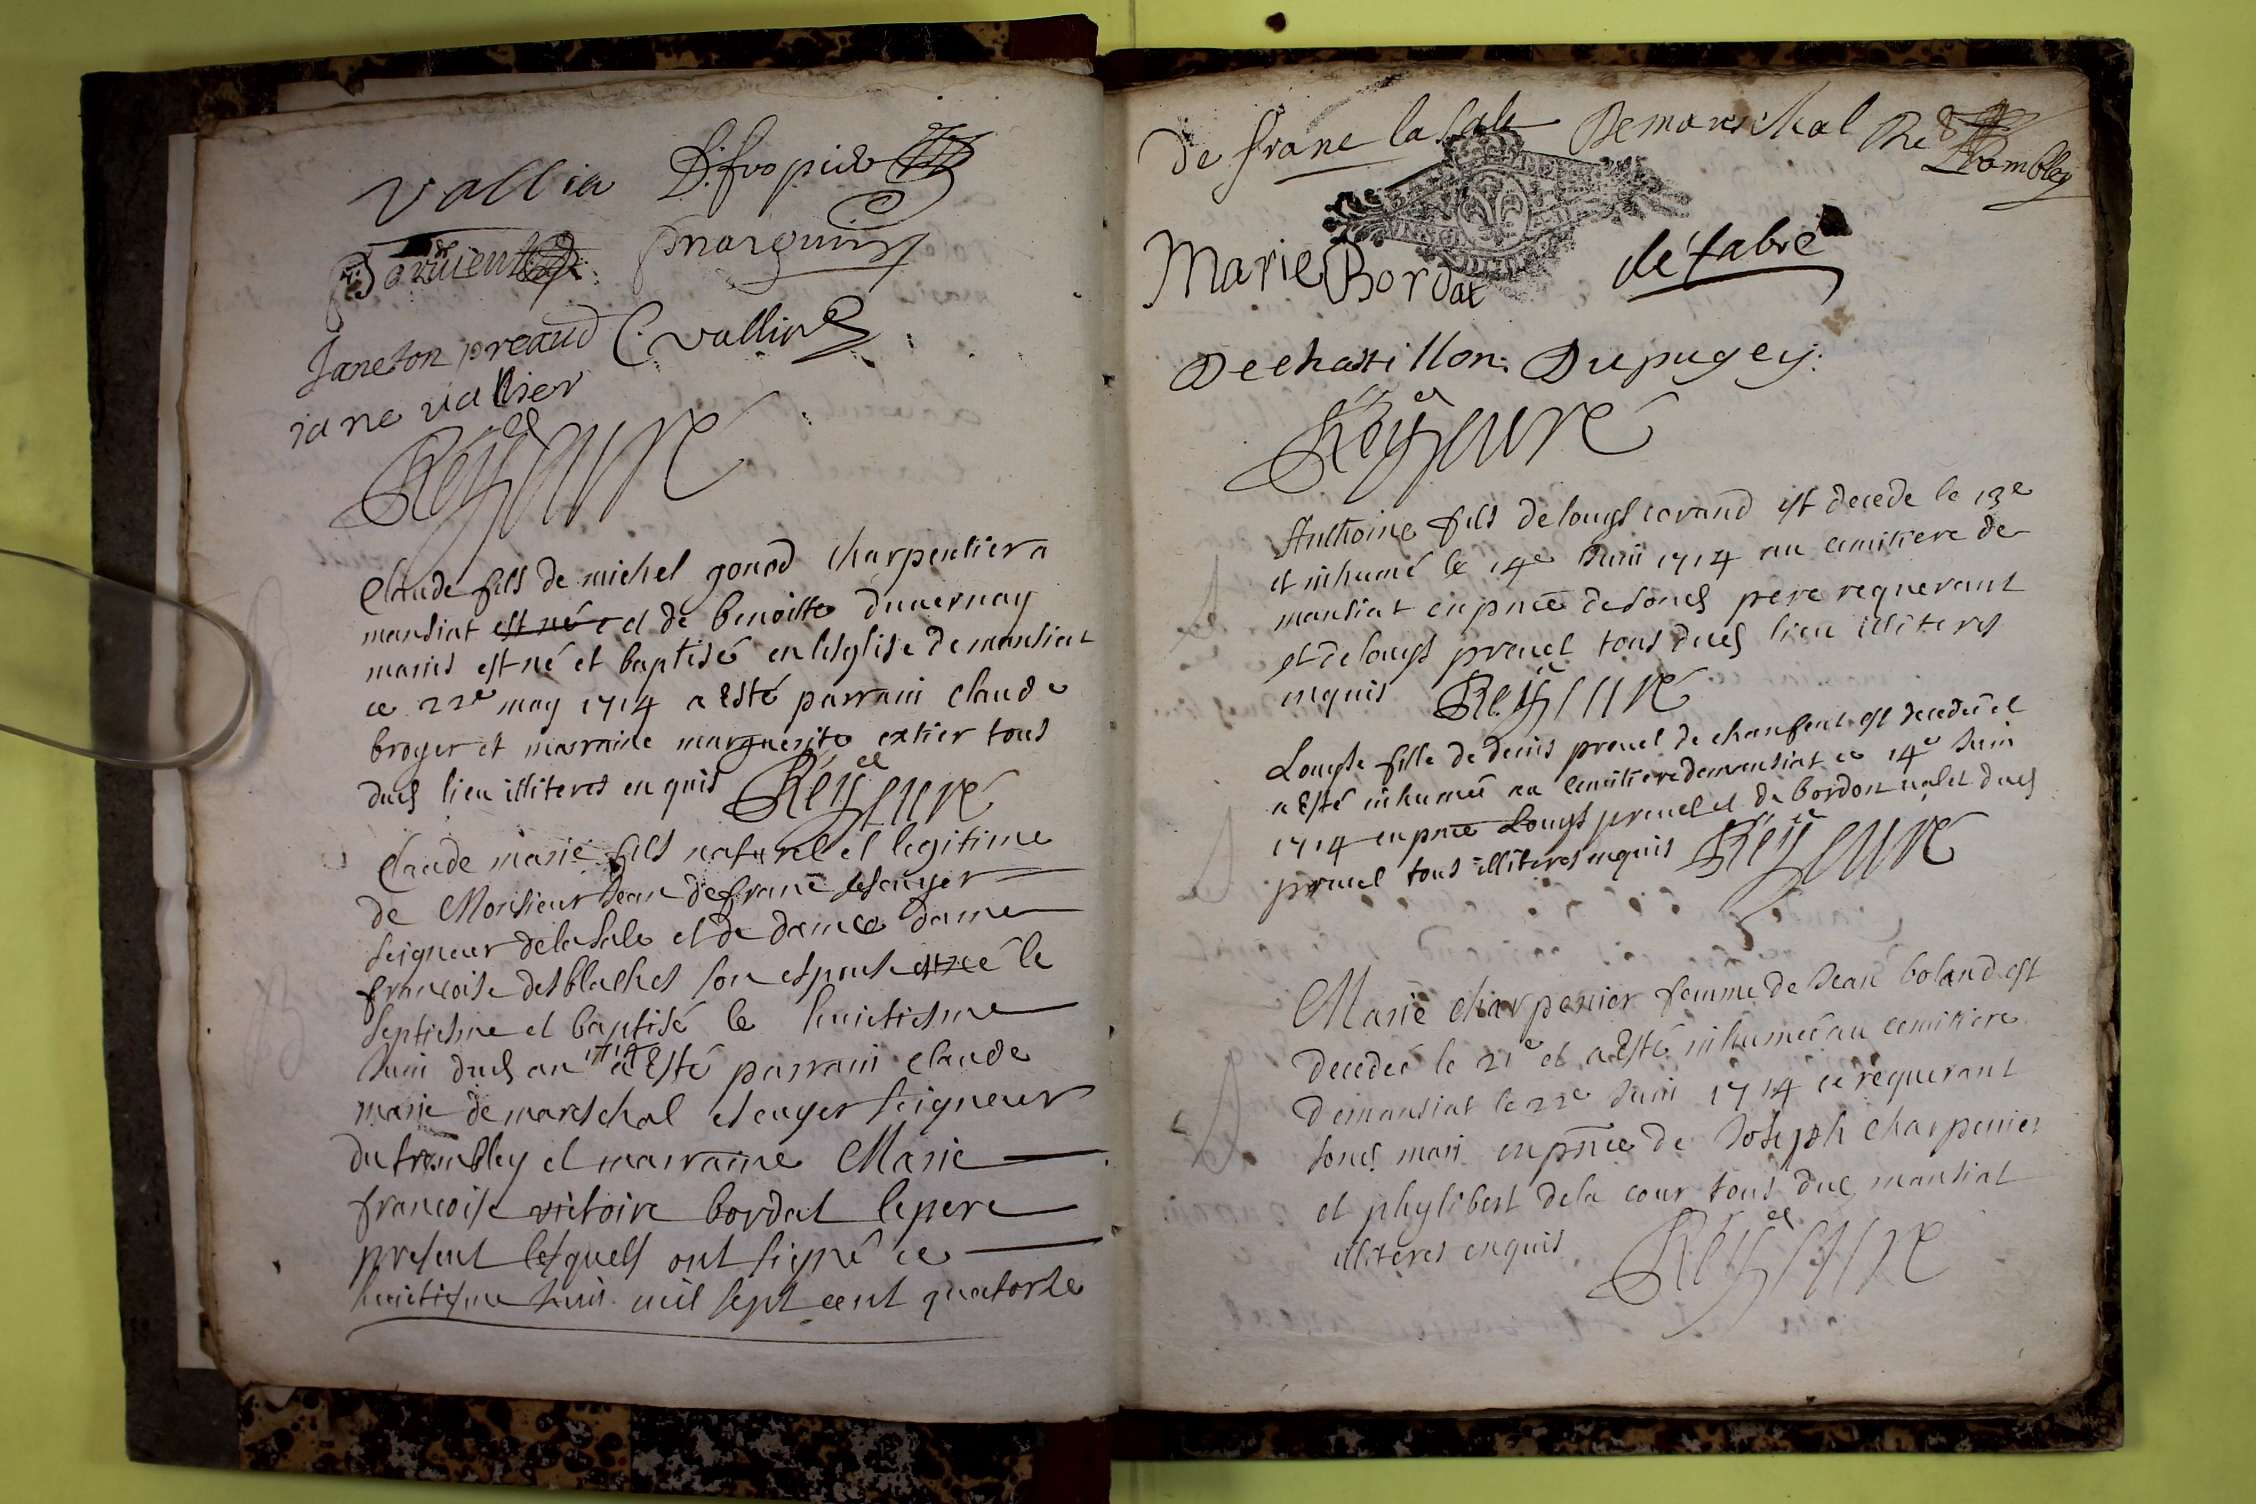 Vallin
Janeton preaud C. vallin
iane vallier
Rey curé
Claude fils de michel gonod charpentier a
mansiat est né et de benoitte duuernay
mariés est né et baptisé en lesglise de mansiat
ce 22e may 1714 a esté parrain claude
broyer et marraine marguerite extier tous
dud lieu illiteres enquis Rey curé
Claude marie fils naturel et legitime
de Monsieur Jean de franc escuyer
seigneur de la sale et de dame dame
francoise desblaches son espouse est né le
septiesme et baptisé le huictiesme
Juin dud an 1714 a esté parrain claude
marie de mareschal escuyer seigneur
du trembley et marraine Marie
francoise victoire bordat le pere
present lesquels ont signé ce
huictiesme Juin mil sept cent quatorze
De franc la sale Demareschal
Trambley
Marie Bordat défabre
Dechastillon Dupugey
Rey curé
Anthoine fils de louys corand est decede le 13e
et inhumé le 14e Juin 1714 au cimitiere de
mansiat en pnce de soud pere requerant
et de louys preuel tous dud lieu illiteres
enquis Rey curé
Louyse fille de denis preuel de chanfent est decedée et
a esté inhumée au cimitiere de mansiat ce 14e Juin
1714 en pnce Louys preuel et de bordon ualet dud
preuel tous illiteres enquis Rey curé
Marie charpenier femme de Jean boland est
decedée le 21e et a esté inhumée au cemitiere
de mansiat le 22e Juin 1714 ce requerant
soud mari en pnce de Joseph charpenier
et phylibert de la cour tous dud mansiat
illiteres enquis Rey curé